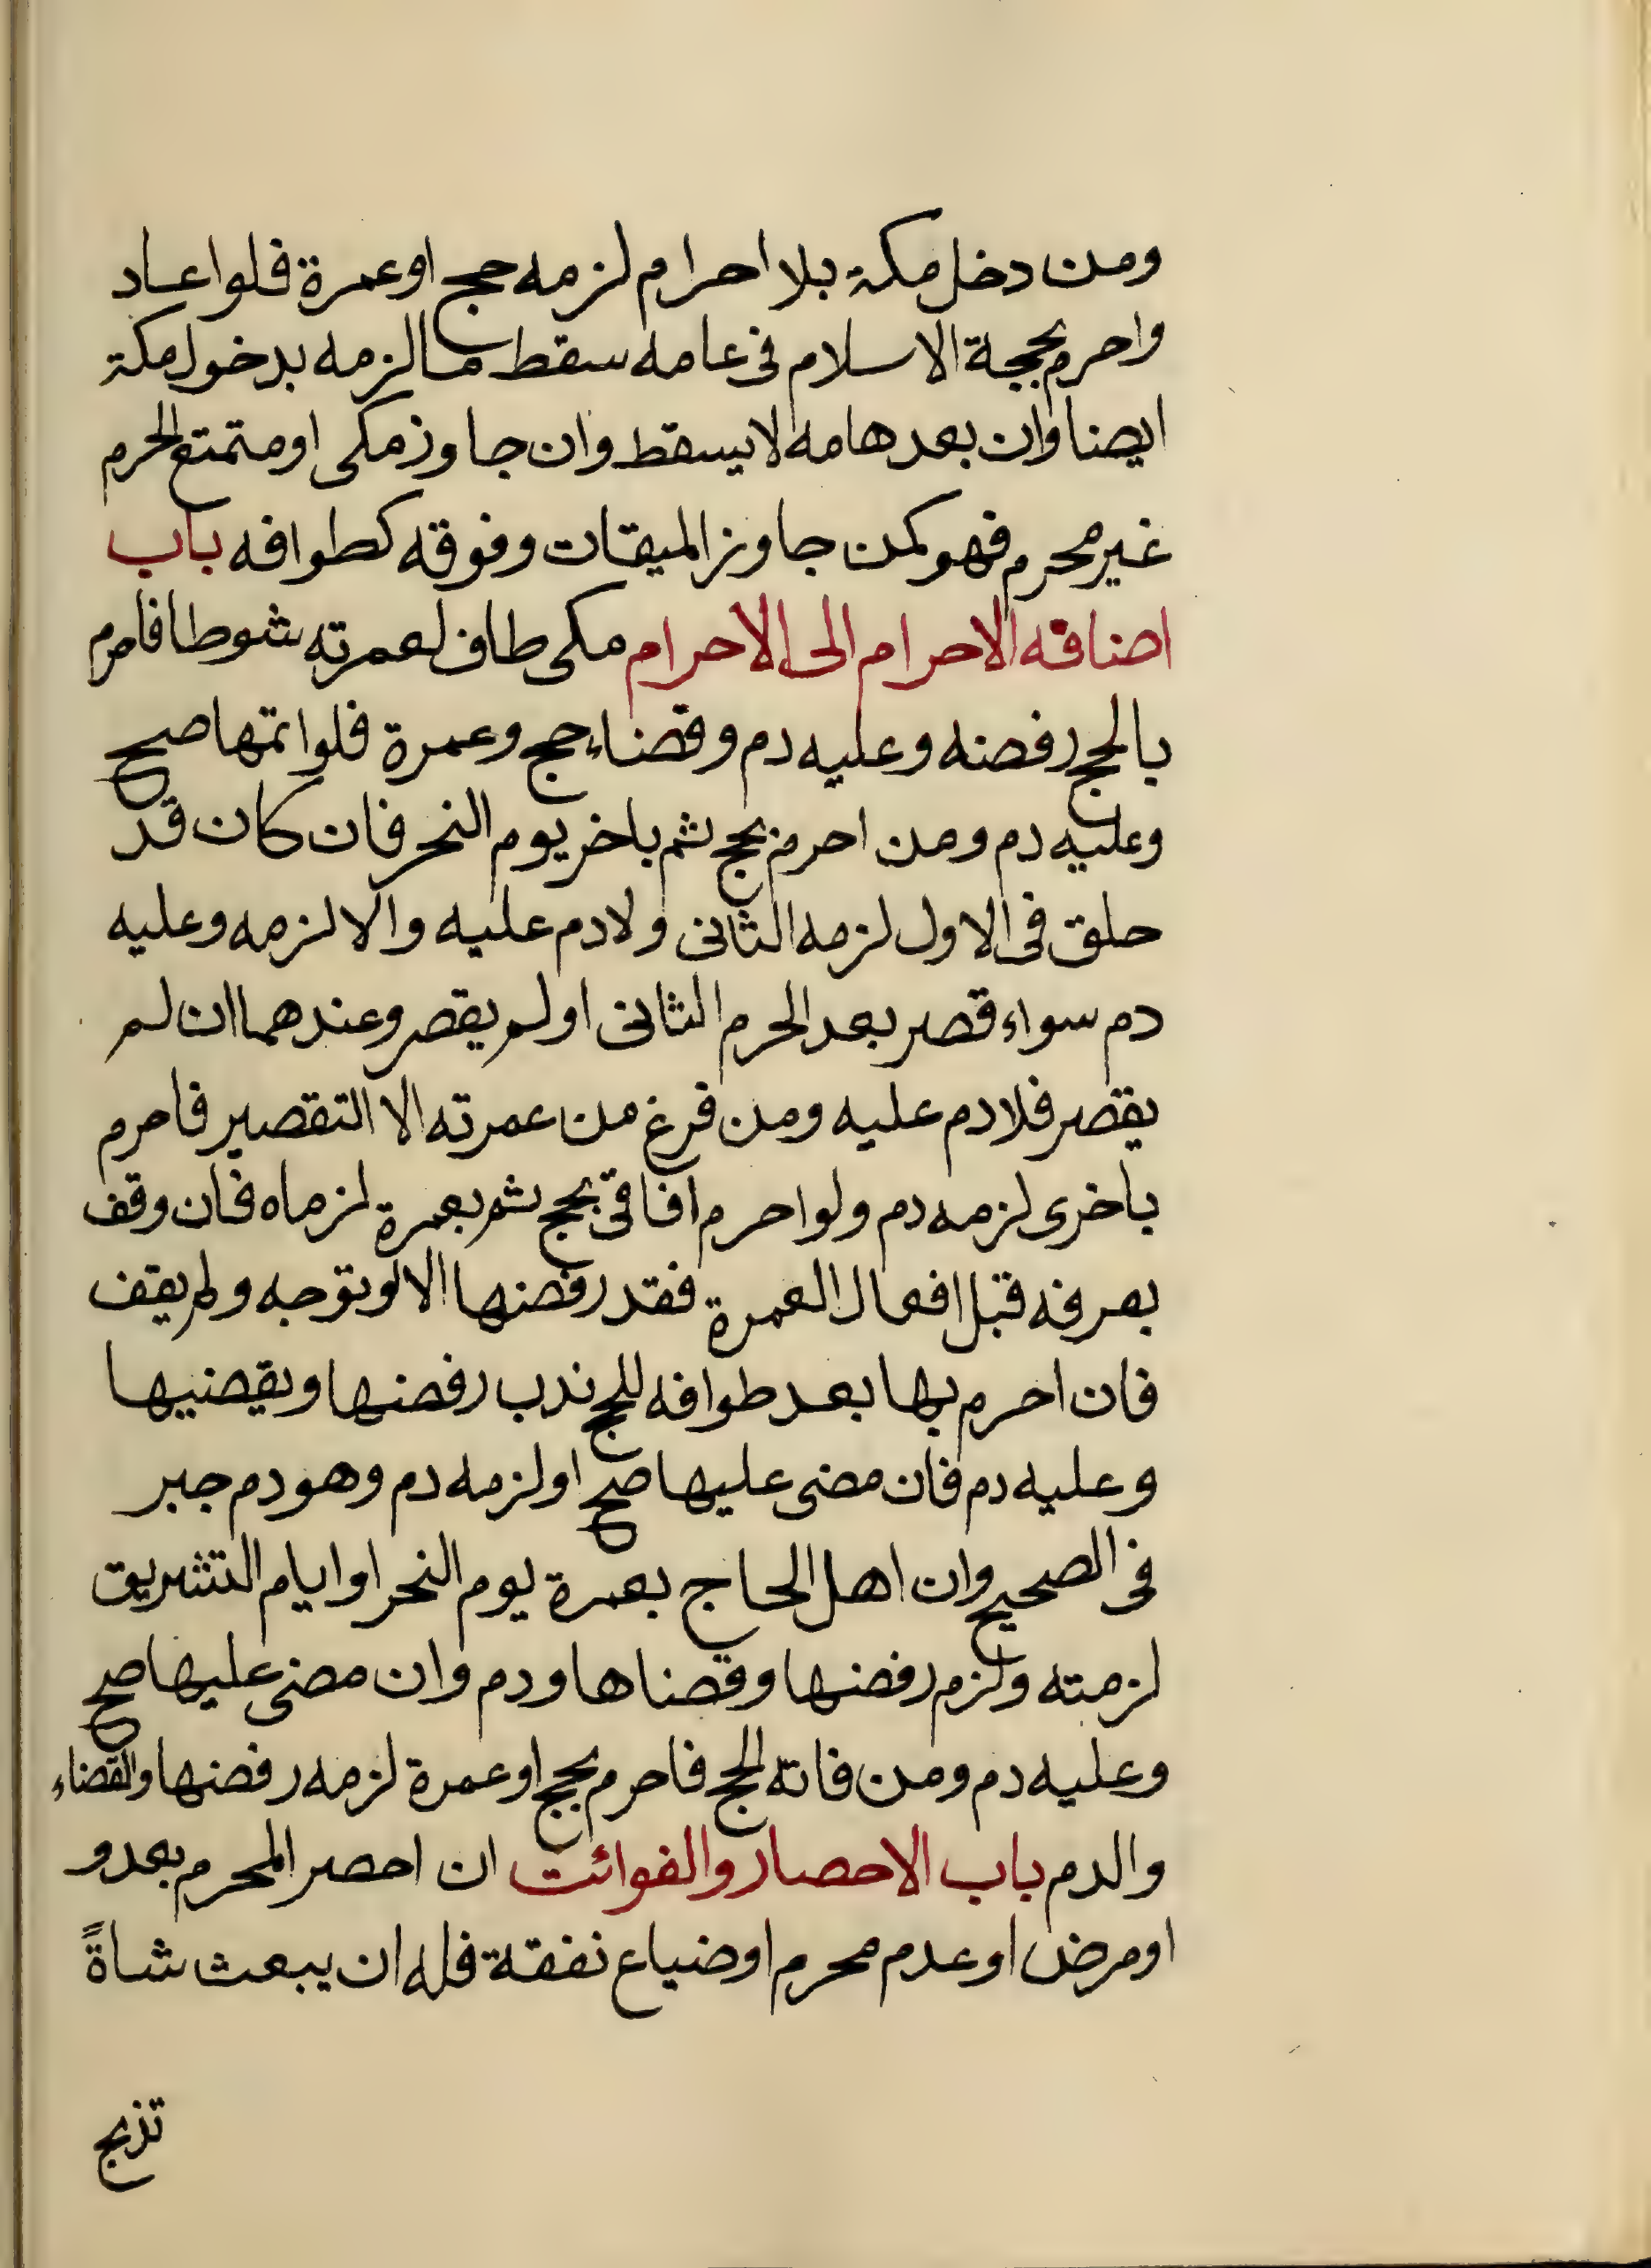 ومن دخل مكة بلا احرام لزمه حج او عمرة فلو اعاد
واحرم بحجة الاسلام فى عامه سقط ما لزمه بدخول مكة
ايضا وان بعد هامه لا يسقط وان جاوز مكى او متمتع الحرم
غير محرم فهو كمن جاوز الميقات وفوقه كطوافه باب
اضافه الاحرام الى الاحرام مكى طاف لعمرته شوطا فاحرم
بالحج رفضه وعليه دم وقضاء حج وعمرة فلو اتمها صح
وعليه دم ومن احرم بحج ثم باخر يوم النحر فان كان قد
حلق فى الاول لزمه الثانى ولا دم عليه والا لزمه وعليه
دم سواء قصر بعد الحرم الثانى او لم يقصر وعندهما ان لم
يقصر فلا دم عليه ومن فرغ من عمرته الا التقصير فاحرم
باخرى لزمه دم ولو احرم افاقى بحج ثم بعمرة لزماه فان وقف
بعرفه قبل افعال العمرة فقد رفضها الا لو توجه ولم يقف
فان احرم بها بعد طوافه للحج ندب رفضها ويقضيها
وعليه دم فان مضى عليها صح او لزمه دم وهو دم جبر
فى الصحيح وان اهل الحاج بعمرة يوم النحر او ايام التشريق
لزمته ولزم رفضها وقضاها ودم وان مضى عليها صح
وعليه دم ومن فاته الحج فاحرم بحج او عمرة لزمه رفضها والقضاء
والدم باب الاحصار والفوائت ان احصر المحرم بعدو
او مرض او عدم محرم او ضياع نفقة فله ان يبعث شاةً
تذبح